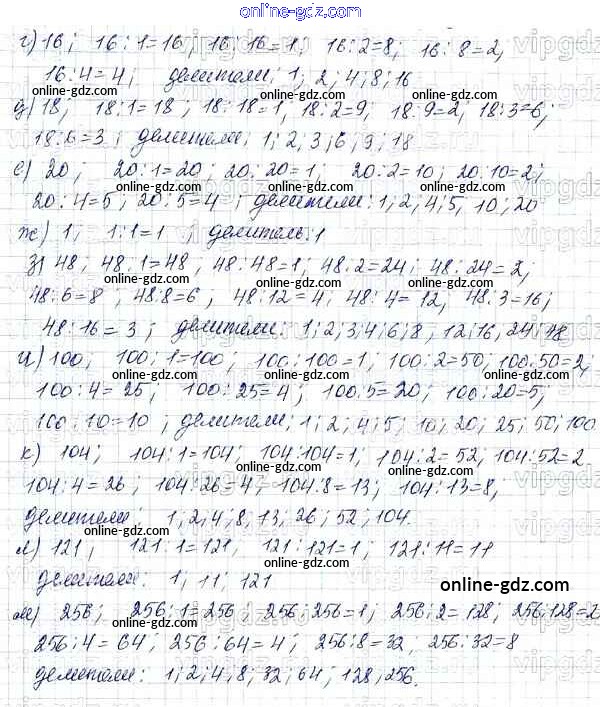 online-gdz.com
г) 16; 16:1=16; 16:16=1; 16:2=8; 16:8=2;
16:4=4; делители: 1; 2; 4; 8; 16
д) 18; 18:1=18; 18:18=1; 18:2=9; 18:9=2; 18:3=6;
18:6=3; делители: 1; 2; 3; 6; 9; 18
е) 20; 20:1=20; 20:20=1; 20:2=10; 20:10=2;
20:4=5; 20:5=4; делители: 1; 2; 4; 5; 10; 20
ж) 1; 1:1=1; делитель: 1
з) 48; 48:1=48; 48:48=1; 48:2=24; 48:24=2;
48:6=8; 48:8=6; 48:12=4; 48:4=12; 48:3=16;
48:16=3; делители: 1; 2; 3; 4; 6; 8; 12; 16, 24; 48
и) 100; 100:1=100; 100:100=1; 100:2=50; 100:50=2;
100:4=25; 100:25=4; 100:5=20; 100:20=5;
100:10=10; делители: 1; 2; 4; 5; 10; 20; 25; 50; 100
к) 104; 104:1=104; 104:104=1; 104:2=52; 104:52=2
104:4=26; 104:26=4; 104:8=13; 104:13=8;
делители: 1; 2; 4; 8; 13; 26; 52; 104.
л) 121; 121:1=121; 121:121=1; 121:11=11
делители: 1; 11; 121
online-gdz.com
м) 256; 256:1=256; 256:256=1; 256:2=128; 256:128=2
256:4=64; 256:64=4; 256:8=32; 256:32=8
делители: 1; 2; 4; 8; 32; 64; 128; 256.